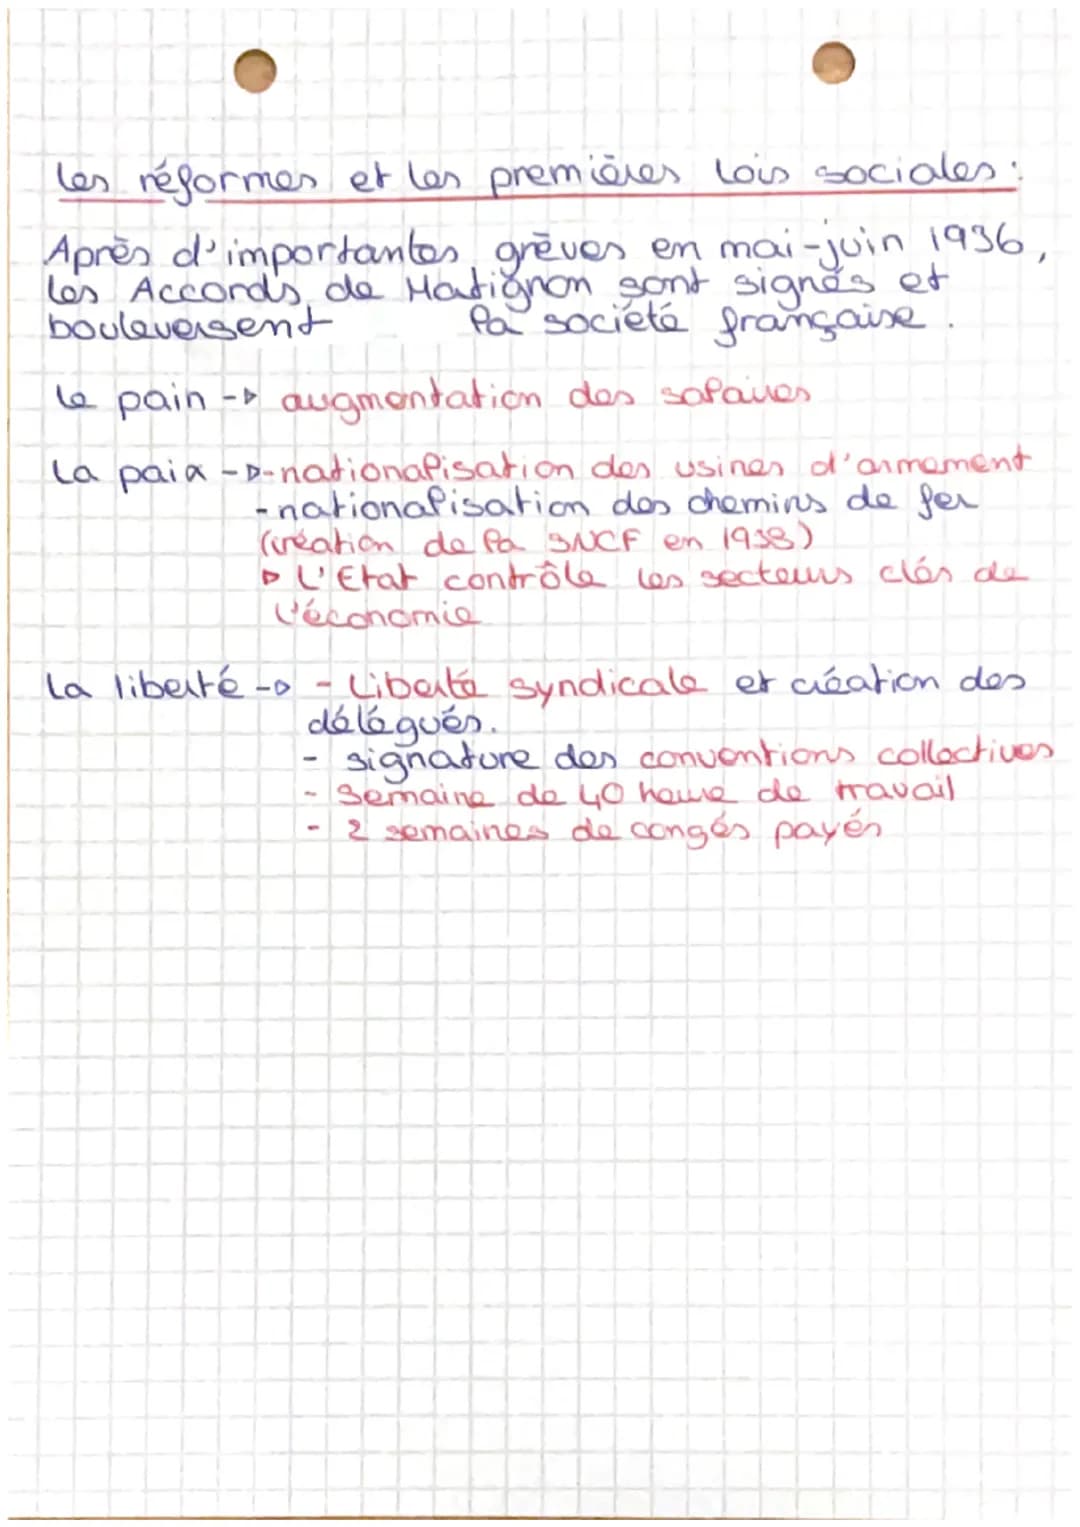 Les réformes et les premières lois sociales :
Après d'importantes grèves en mai-juin 1936,
les Accords de Matignon sont signés et
bouleversent la société française.
Le pain -> augmentation des salaires
La paix -> -nationalisation des usines d'armement
-nationalisation des chemins de fer
(création de la SNCF en 1938)
▷ L'Etat contrôle les secteurs clés de
l'économie
La liberté -> - Liberté syndicale et création des
délégués.
- signature des conventions collectives
- Semaine de 40 heure de travail
- 2 semaines de congés payés